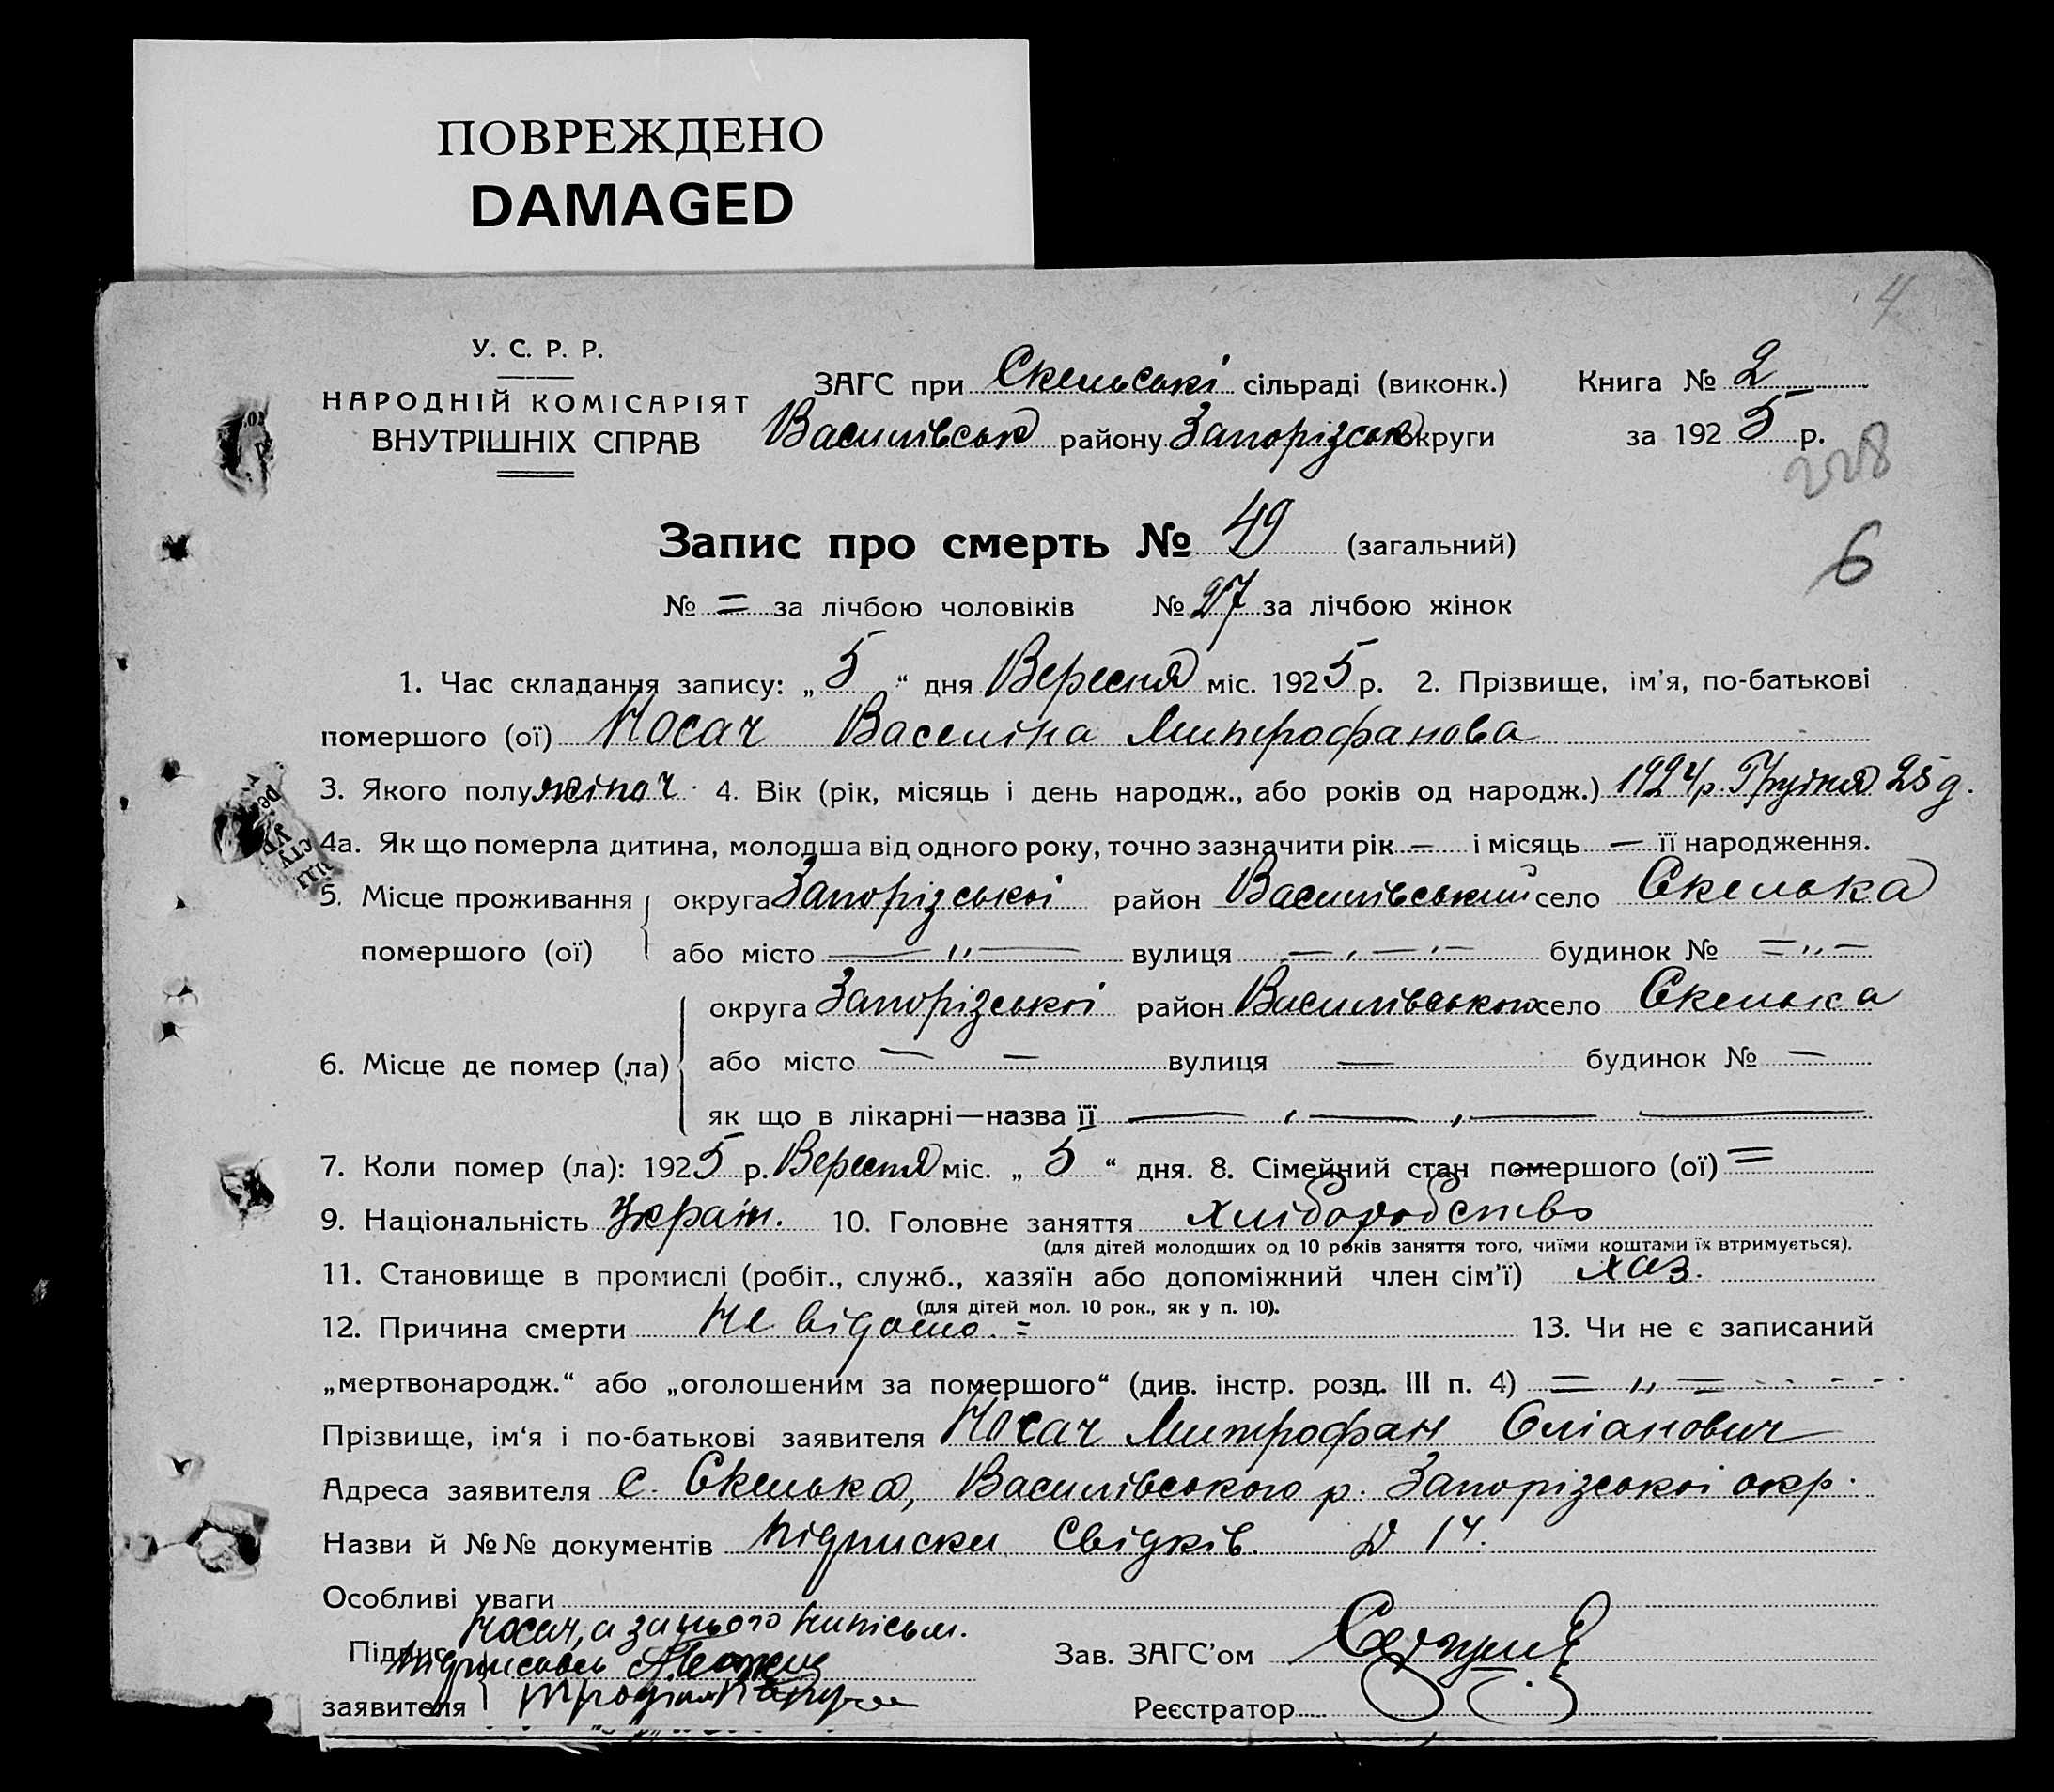 ПОВРЕЖДЕНО
DAMAGED
4
У. С. Р. Р.
НАРОДНІЙ КОМІСАРІЯТ
ВНУТРІШНІХ СПРАВ
ЗАГС при Скельські сільраді (виконк.) Книга № 2
Василівськ району Запорізськ округи за 1925 р.
228
Запис про смерть № 49 (загальний)
6
№ = за лічбою чоловіків № 27 за лічбою жінок
1. Час складання запису: „5“ дня Вересня міс. 1925 р. 2. Прізвище, ім'я, по-батькові
помершого (ої) Носач Василіна Митрофанова
3. Якого полу жіноч. 4. Вік (рік, місяць і день народж., або років од народж.) 1924 р. Грудня 25 д.
4а. Як що померла дитина, молодша від одного року, точно зазначити рік — і місяць — її народження.
5. Місце проживання округа Запорізської район Василівський село Скелька
помершого (ої) або місто — „ — вулиця — „ — „ — будинок № = „ —
округа Запорізської район Василівського село Скелька
6. Місце де помер (ла) або місто — — вулиця — будинок № —
як що в лікарні—назва її — , — , — —
7. Коли помер (ла): 1925 р. Вересня міс. „5“ дня. 8. Сімейний стан помершого (ої) =
9. Національність Україн. 10. Головне заняття хліборобство
(для дітей молодших од 10 років заняття того, чиїми коштами їх втримується).
11. Становище в промислі (робіт., служб., хазяїн або допоміжний член сім'ї) хаз.
(для дітей мол. 10 рок., як у п. 10).
12. Причина смерти Не відомо. = 13. Чи не є записаний
„мертвонародж.“ або „оголошеним за помершого“ (див. інстр. розд. III п. 4) = „ =
Прізвище, ім'я і по-батькові заявителя Носач Митрофан Оліанович
Адреса заявителя с. Скелька, Василівського р. Запорізської окр.
Назви й №№ документів підписки свідків. Д 14.
Особливі уваги
Носач, а за нього неписьм.
Підпис підписавсь
Зав. ЗАГС'ом
заявителя
Реєстратор